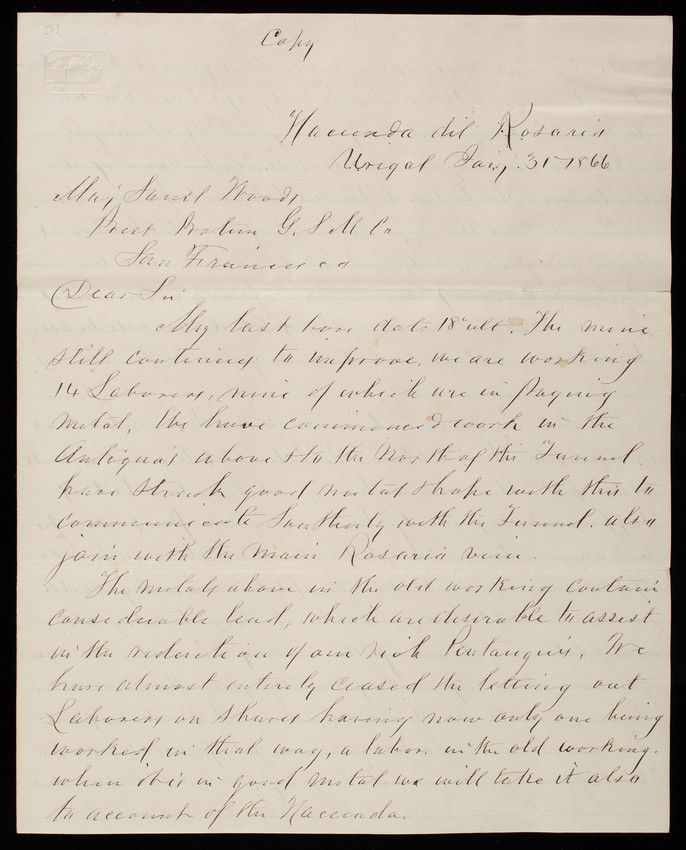 Copy
Hacienda del Rosario
Urigal Jany. 31 1866
Maj Saml Woods
Prest G. S M Co
San Francisco
Dear Sir
My last bore date 18" ult. The mine
still continues to improve. we are working
14 Labores, nine of which are in paying
metal, We have commenced work in the
Antiguas above & to the North of the Tunnel.
have struck good metal & hope with this to
communicate Southerly with the Tunnel. also
join with the main Rosario vein.
The metals above in the old working contain
considerable lead, which are desirable to assist
in the reduction of our rich Pentanques. We
have almost entirely ceased the letting out
Labores on shares having now only one being
worked in that way, a labor in the old working.
when it is in good metal we will take it also
to account of the Hacienda.